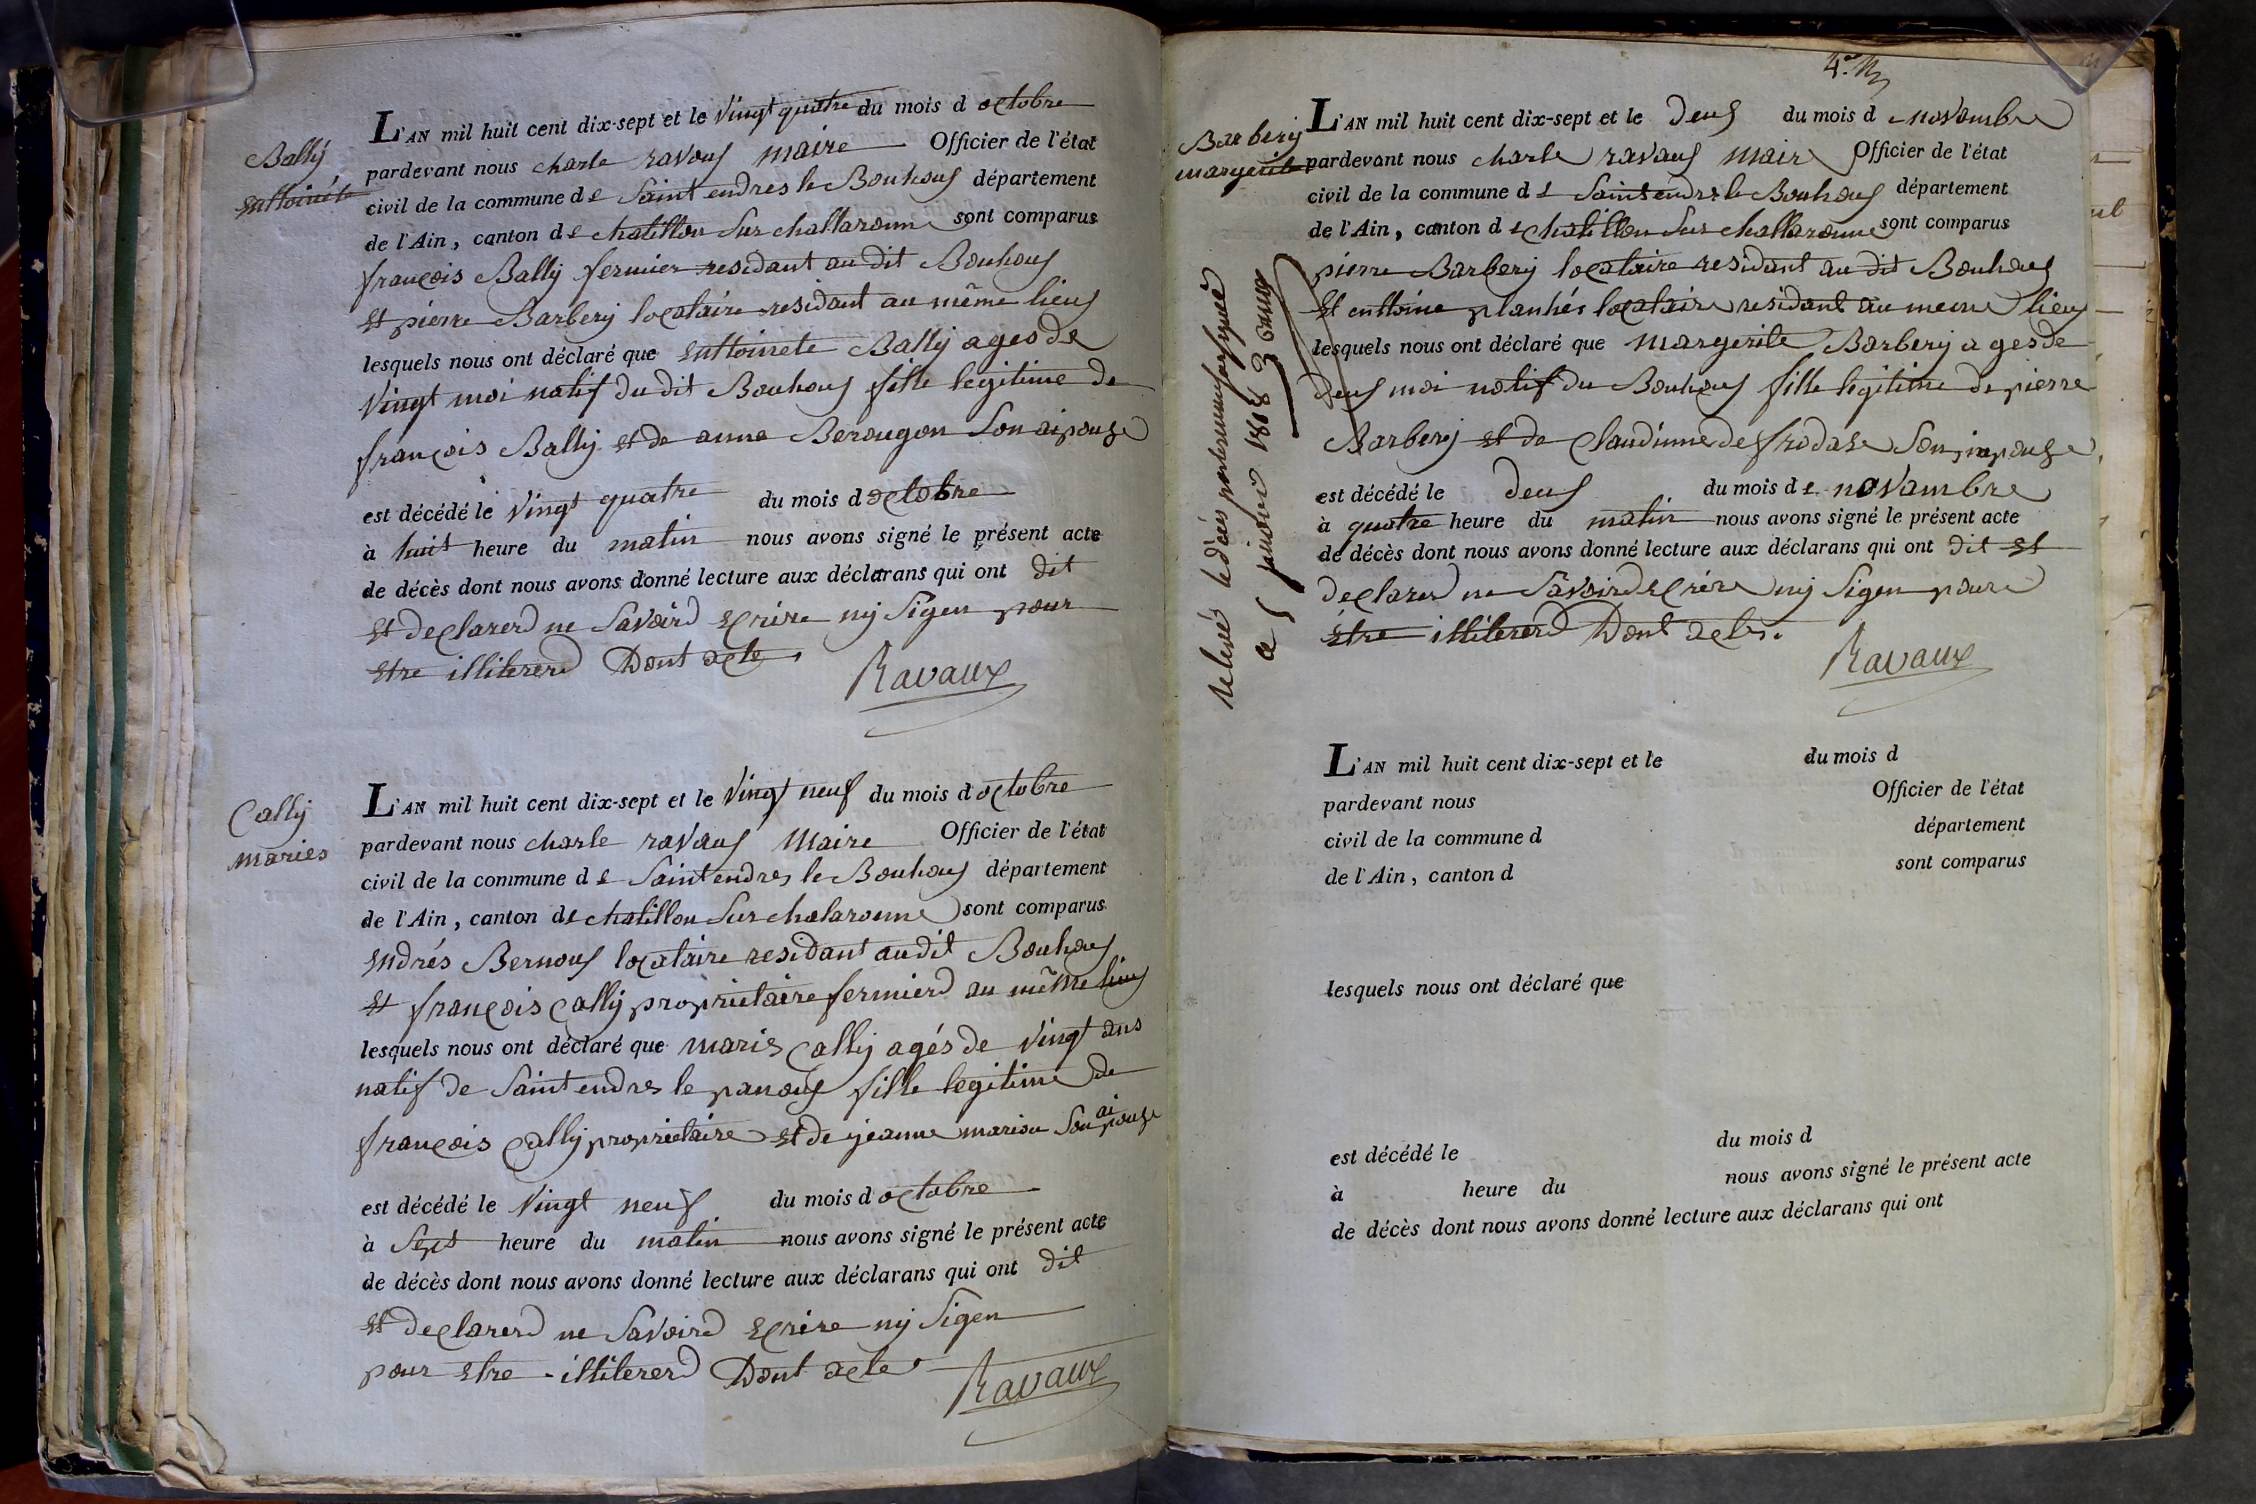 Bally
enttoinete
L'AN mil huit cent dix-sept et le Vingt quatre du mois d octobre
pardevant nous charle ravous maire Officier de l'état
civil de la commune de Saint endres le Bouhous département
de l'Ain, canton de chatillon Sur challaronne sont comparus
françois Bally fermier residant au dit Bouhous
et pierre Barbery locataire residant au même lieus
lesquels nous ont déclaré que enttoinete Bally ages de
Vingt moi natif du dit Bouhous fille legitime de
françois Bally et de anna Berougon Son aipouse
est décédé le Vingt quatre du mois d octobre
à huit heure du matin nous avons signé le présent acte
de décès dont nous avons donné lecture aux déclarans qui ont dit
et declarerd ne Savoird ecrire ny Sigen pour
etre illitererd Dont acte
Ravaux
Cally
maries
L'AN mil huit cent dix-sept et le Vingt neuf du mois d octobre
pardevant nous charle ravaus Maire Officier de l'état
civil de la commune de Saint endres le Bouhous département
de l'Ain, canton de chatillon Sur chalaronne sont comparus
endrés Bernous locataire residant audit Bouhous
et françois Cally proprietaire fermierd au même lieus
lesquels nous ont déclaré que maries Cally agés de vingt ans
natif de Saint endres le panous fille legitime de
françois Cally proprietaire et de jeanne marion Son aipouse
est décédé le Vingt neuf du mois d octobre
à Sept heure du matin nous avons signé le présent acte
de décès dont nous avons donné lecture aux déclarans qui ont dit
et declarerd ne Savoird ecrire ny Sigen
pour etre illitererd Dont acte
Ravaux
4.e
Barbery
margerite
L'AN mil huit cent dix-sept et le deus du mois d novambre
pardevant nous charle ravaus mair Officier de l'état
civil de la commune de Saint endres le Bouhous département
de l'Ain, canton de chatillon Sur challaronne sont comparus
pierre Barbery locataire residant au dit Bouhous
et enttoine planhés locataire residant au meme lieu
lesquels nous ont déclaré que margerite Barbery ages de
deus moi natif du Bouhous fille legitime de pierre
Barbery et de Claudinne defrodase Son aipouse
est décédé le deus du mois de novambre
à quatre heure du matin nous avons signé le présent acte
de décès dont nous avons donné lecture aux déclarans qui ont dit et
declarerd ne Savoird ecrire ny Sigen pour
être illitererd Dont acte.
Ravaux
relevé le décès par le
ce 5 janvier 1818
L'AN mil huit cent dix-sept et le du mois d
pardevant nous Officier de l'état
civil de la commune d département
de l'Ain, canton d sont comparus
lesquels nous ont déclaré que
est décédé le du mois d
à heure du nous avons signé le présent acte
de décès dont nous avons donné lecture aux déclarans qui ont